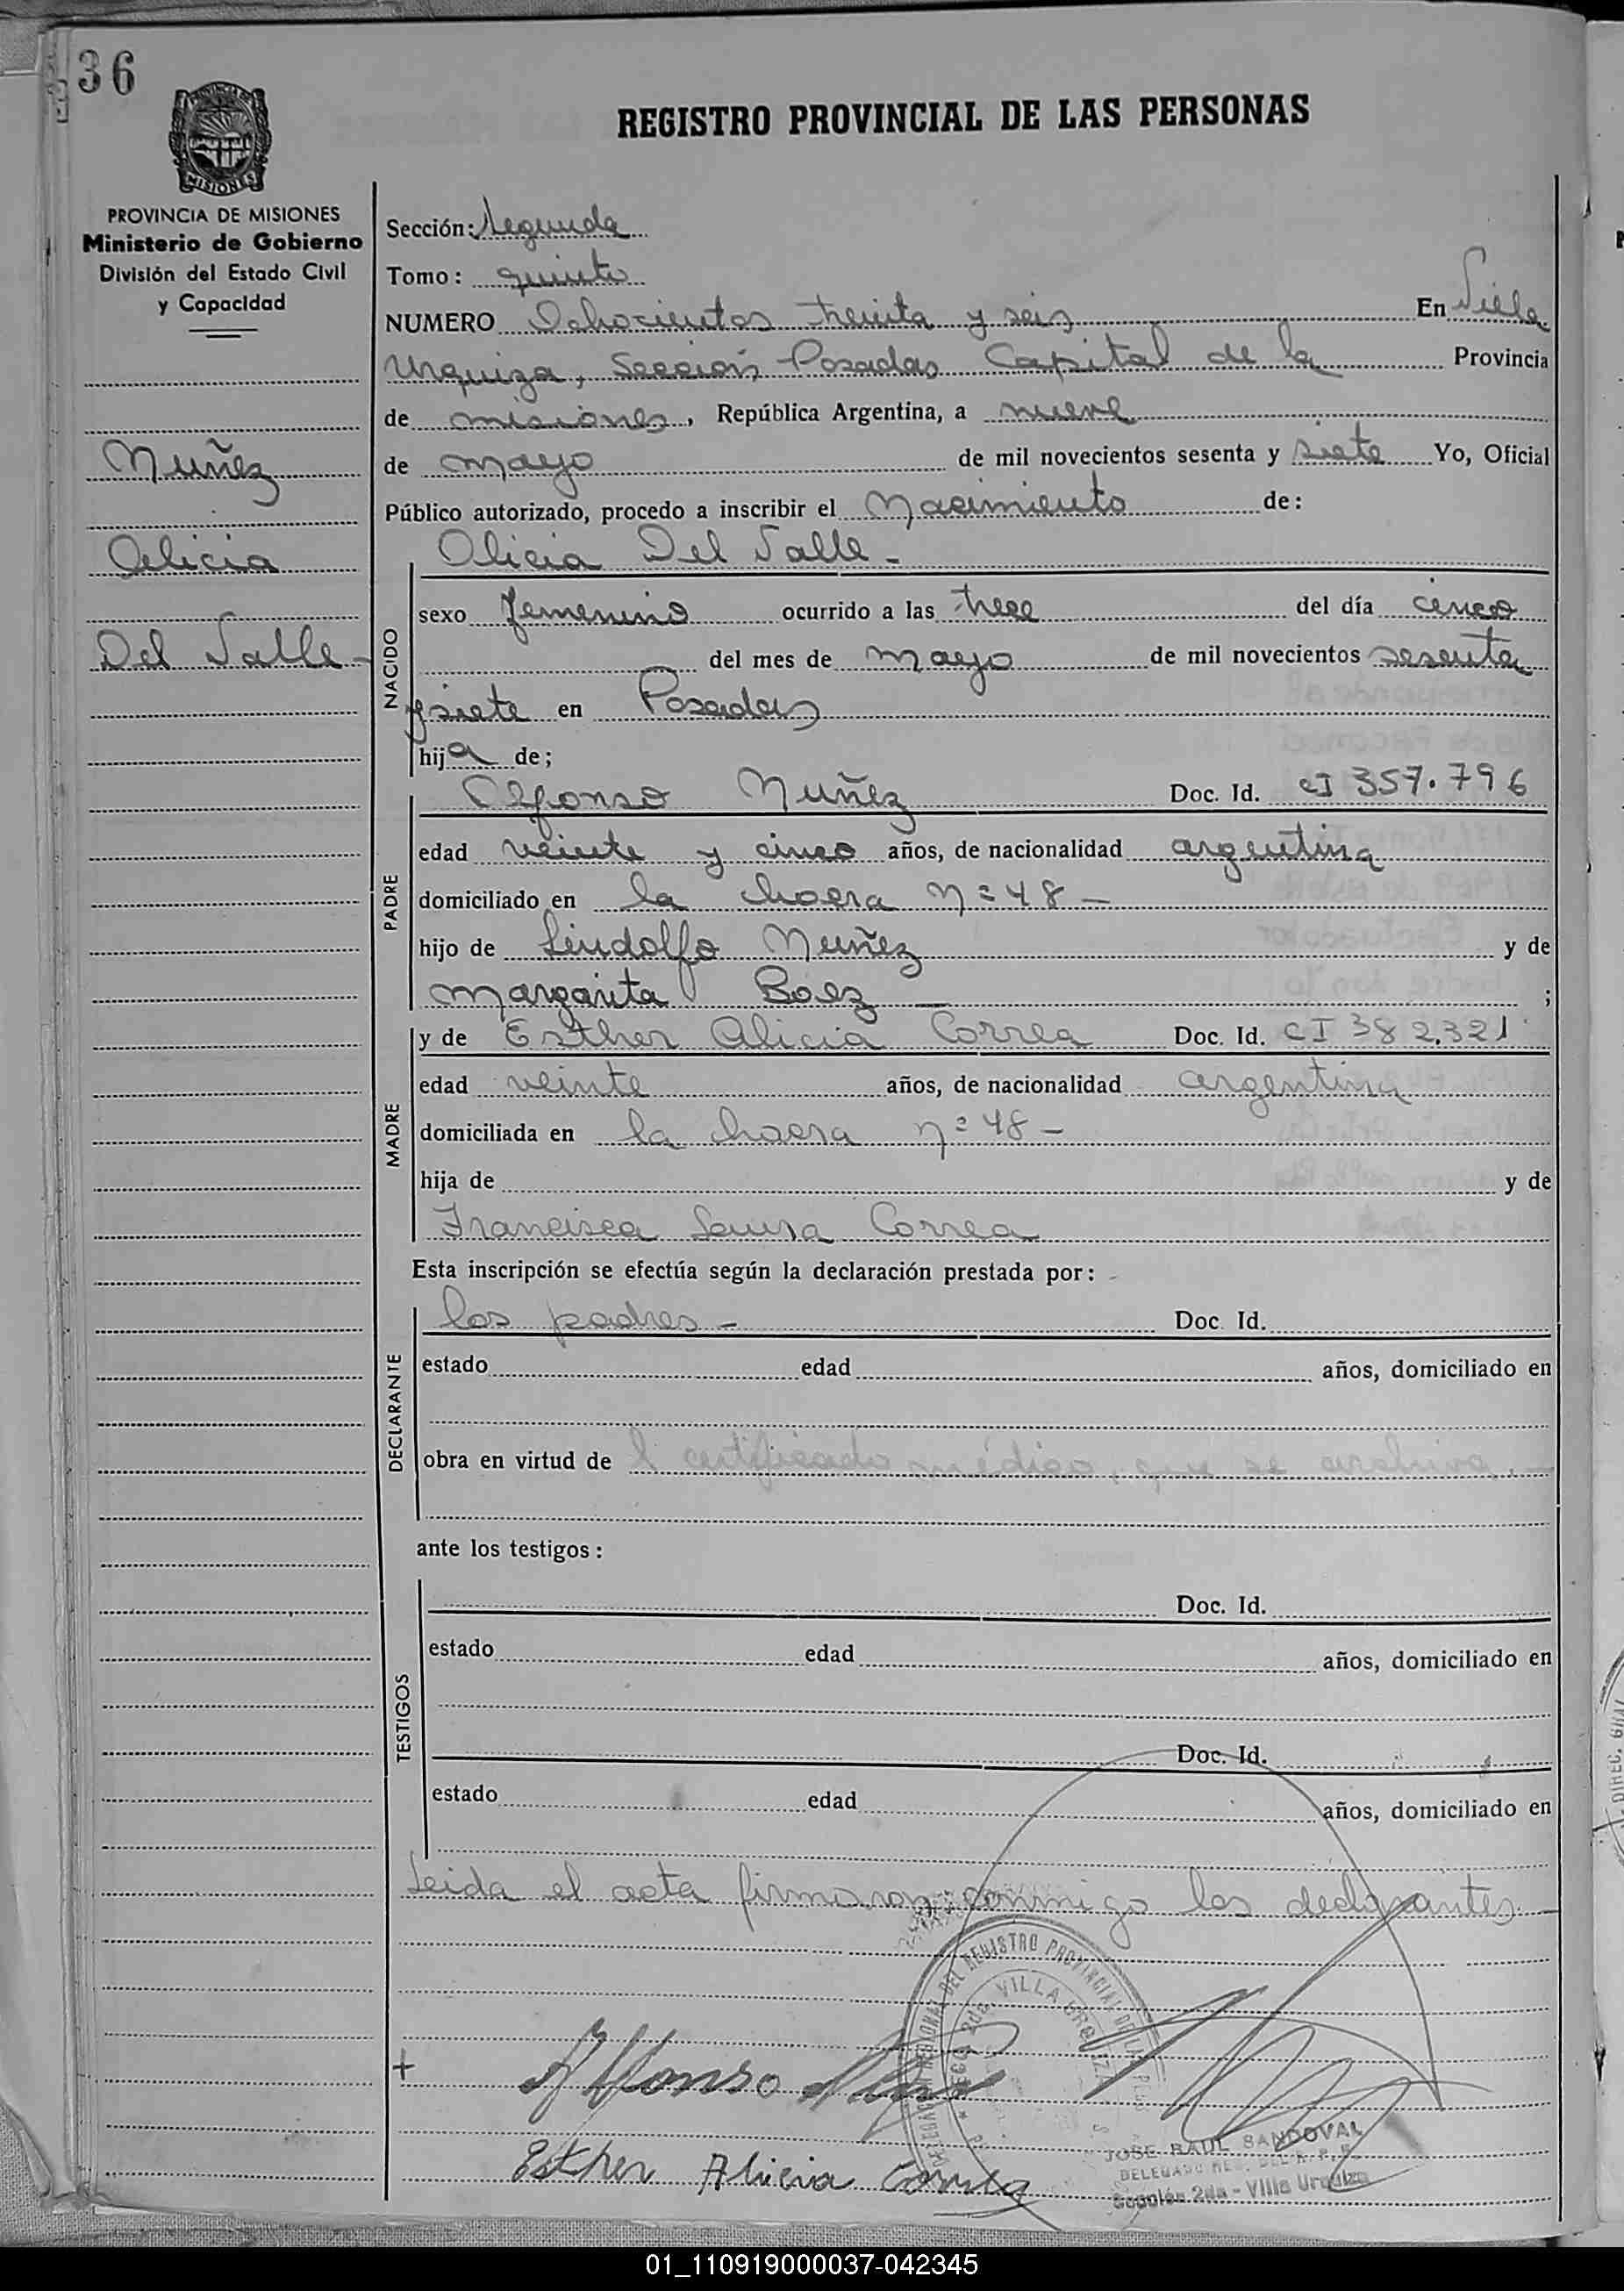 36
REGISTRO PROVINCIAL DE LAS PERSONAS
MISIONES
PROVINCIA DE MISIONES
Ministerio de Gobierno
División del Estado Civil
y Capacidad
Nuñez
Alicia
Del Valle -
Sección: Segunda
Tomo: quinto
NUMERO Ochocientos treinta y seis En Villa
Urquiza, Sección Posadas Capital de la Provincia
de misiones, República Argentina, a nueve
de mayo de mil novecientos sesenta y siete Yo, Oficial
Público autorizado, procedo a inscribir el Nacimiento de:
Alicia Del Valle -
NACIDO
sexo femenino ocurrido a las trece del día cinco
del mes de mayo de mil novecientos sesenta
y siete en Posadas
hija de;
PADRE
Alfonso Nuñez Doc. Id. CI 357.796
edad veinte y cinco años, de nacionalidad argentina
domiciliado en la chacra nº 48 -
hijo de Lindolfo Nuñez y de
Margarita Baez ;
MADRE
y de Esther Alicia Correa Doc. Id. CI 382.321
edad veinte años, de nacionalidad argentina
domiciliada en la chacra nº 48 -
hija de y de
Francisca Laura Correa
Esta inscripción se efectúa según la declaración prestada por:
DECLARANTE
los padres - Doc. Id.
estado edad años, domiciliado en
obra en virtud de l certificado médico, que se archiva. -
ante los testigos:
TESTIGOS
Doc. Id.
estado edad años, domiciliado en
Doc. Id.
estado edad años, domiciliado en
Leida el acta firmaron conmigo los declarantes. -
REGISTRO PROVINCIAL DE LAS
VILLA URQUIZA
+ Alfonso Nuñez
Esther Alicia Correa
JOSE RAUL SANDOVAL
Sección 2da - Villa Urquiza
01_110919000037-042345